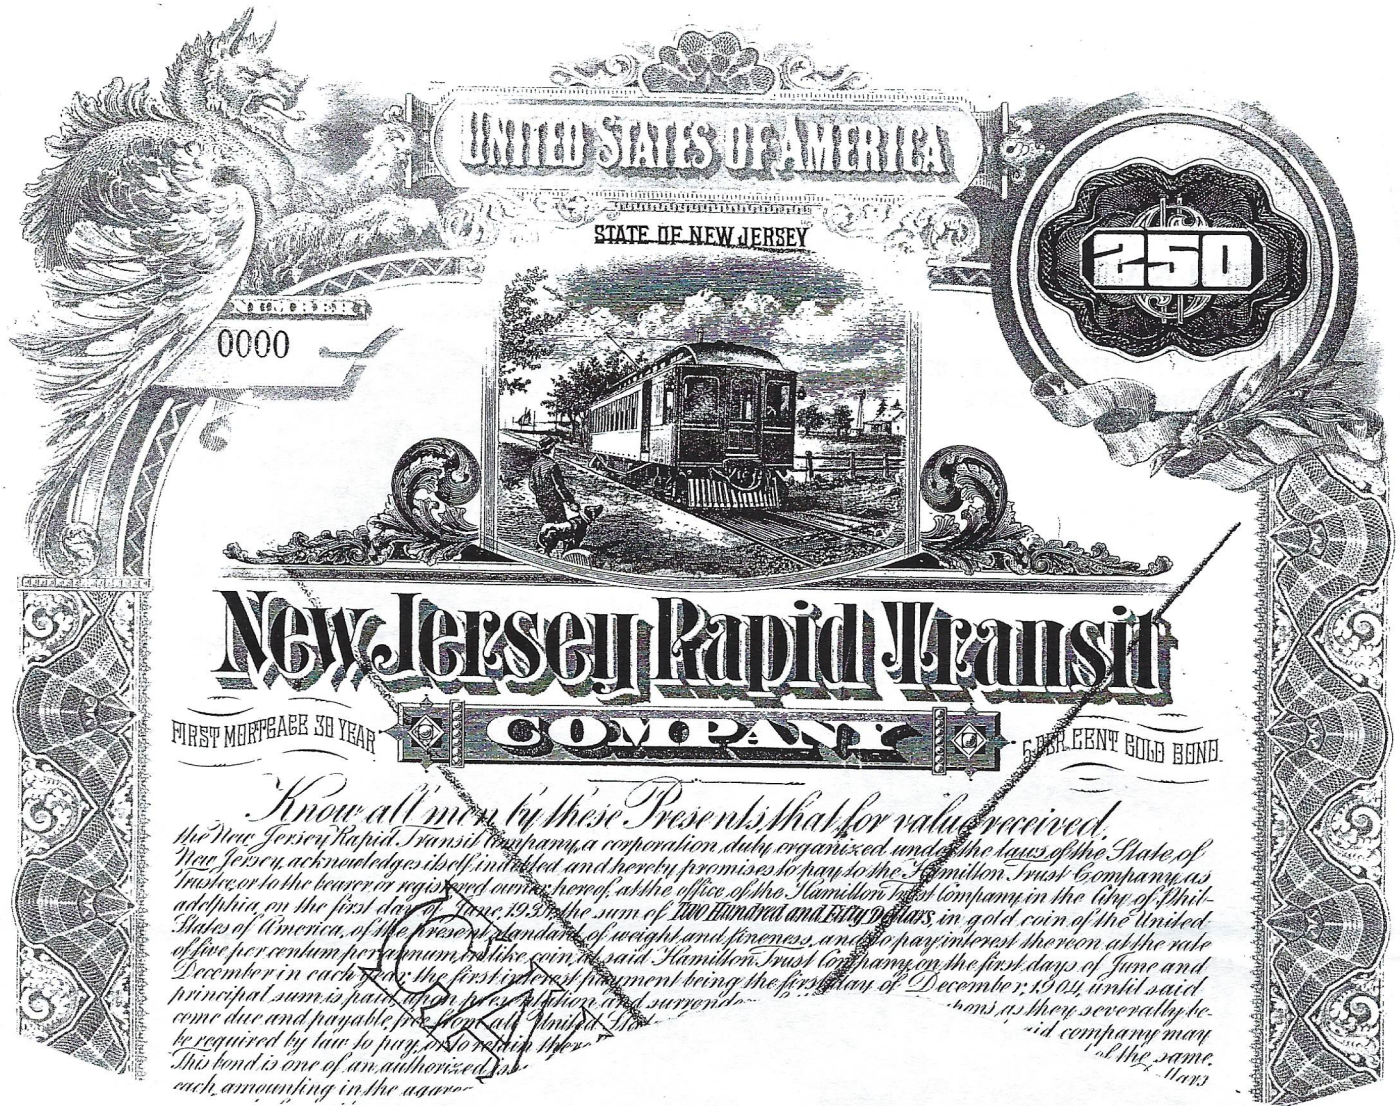 UNITED STATES OF AMERICA
STATE OF NEW JERSEY
250
NUMBER
0000
New Jersey Rapid Transit
COMPANY
FIRST MORTGAGE 30 YEAR
5 PER CENT GOLD BOND.
Know all men by these Presents, that, for value received,
the New Jersey Rapid Transit Company, a corporation, duly organized under the laws of the State of
New Jersey, acknowledges itself indebted and hereby promises to pay to the Hamilton Trust Company, as
Trustee, or to the bearer or registered owner hereof, at the office of the Hamilton Trust Company, in the City of Phil-
adelphia, on the first day of June, the sum of Two Hundred and Fifty Dollars, in gold coin of the United
States of America, of the present standard of weight and fineness, and to pay interest thereon at the rate
of five per centum per annum, in like coin, at said Hamilton Trust Company, on the first days of June and
December in each year, the first interest payment being the first day of December, 1904, until said
principal sum is paid, upon presentation and surrender pons, as they severally be-
come due and payable, free from all United Sta id company may
be required by law to pay, or to retain there of the same.
This bond is one of an authorized iss llars
each, amounting in the aggre